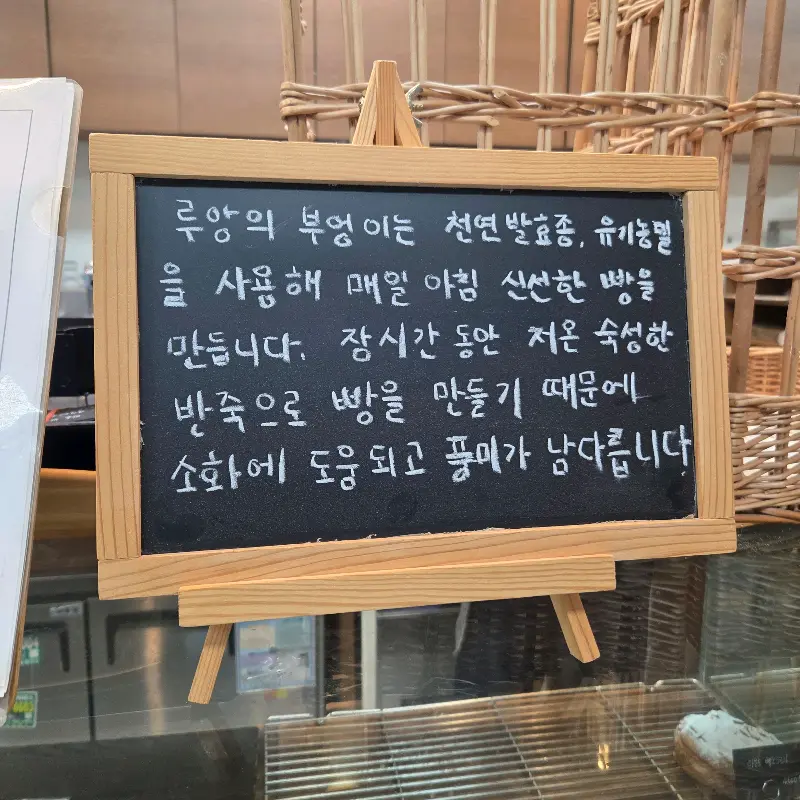 루앙의 부엉이는 천연발효종, 유기농밀
을 사용해 매일 아침 신선한 빵을
만듭니다. 장시간 동안 저온 숙성한
반죽으로 빵을 만들기 때문에
소화에 도움되고 풍미가 남다릅니다